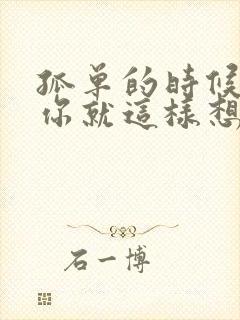 孤单的時候
你就這樣想
石一博